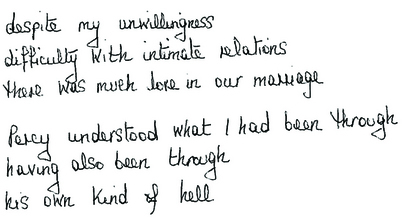 despite my unwillingness
difficulty with intimate relations
there was much love in our marriage
Percy understood what I had been through
having also been through
his own kind of hell